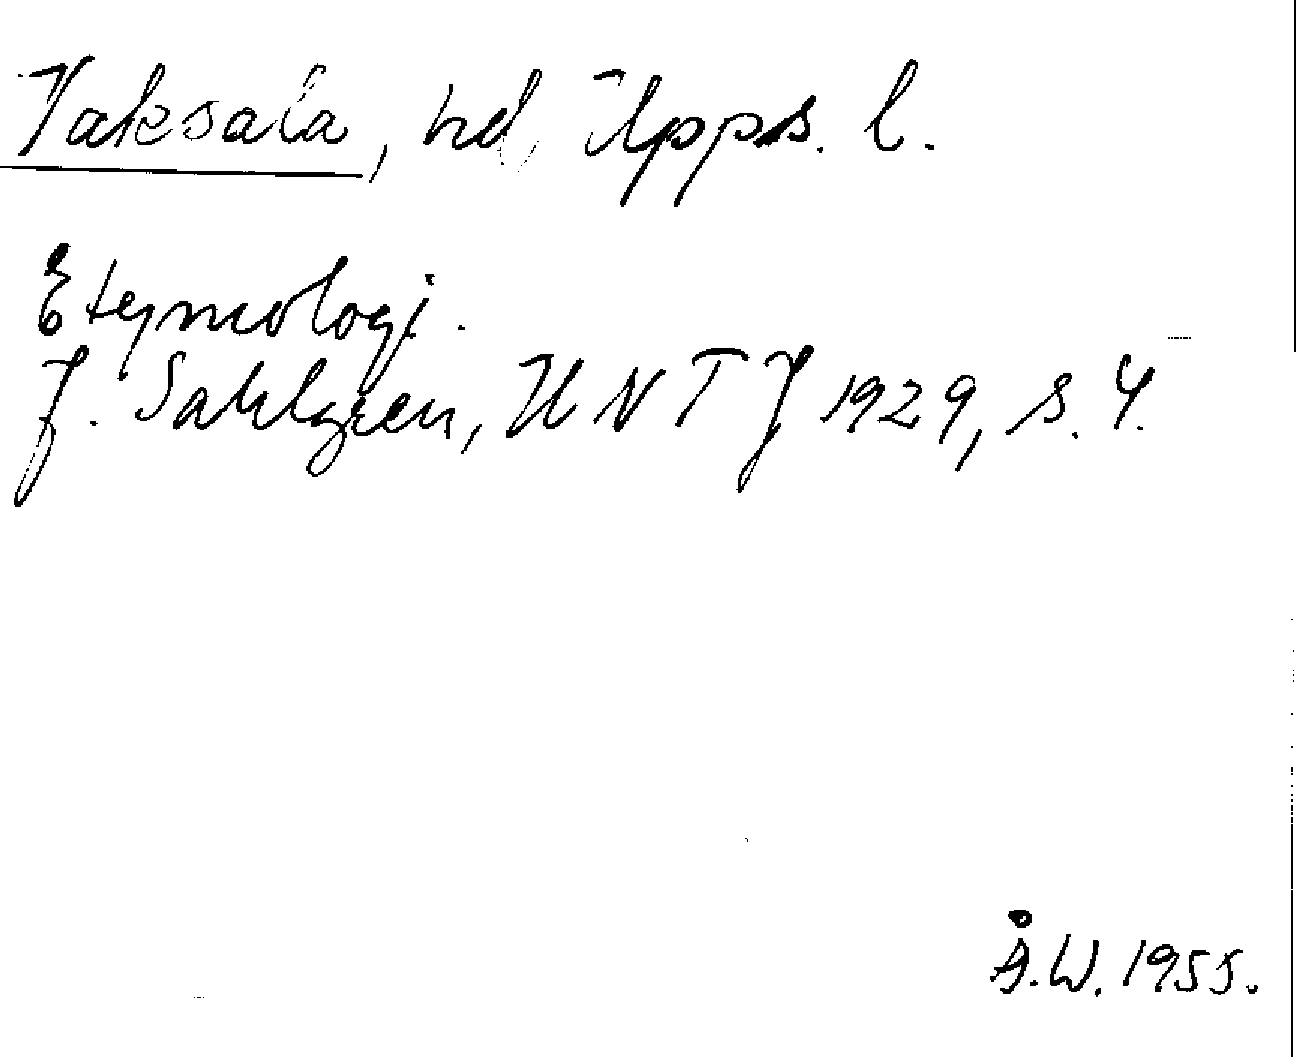 Vaksala, hd, Upps. l.
Etymologi.
J. Sahlgren, UNTJ 1929, s. 4.
Å.W. 1955.